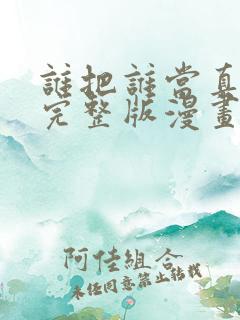 誰把誰當真
完整版漫畫
阿佳組合
未经同意禁止转载